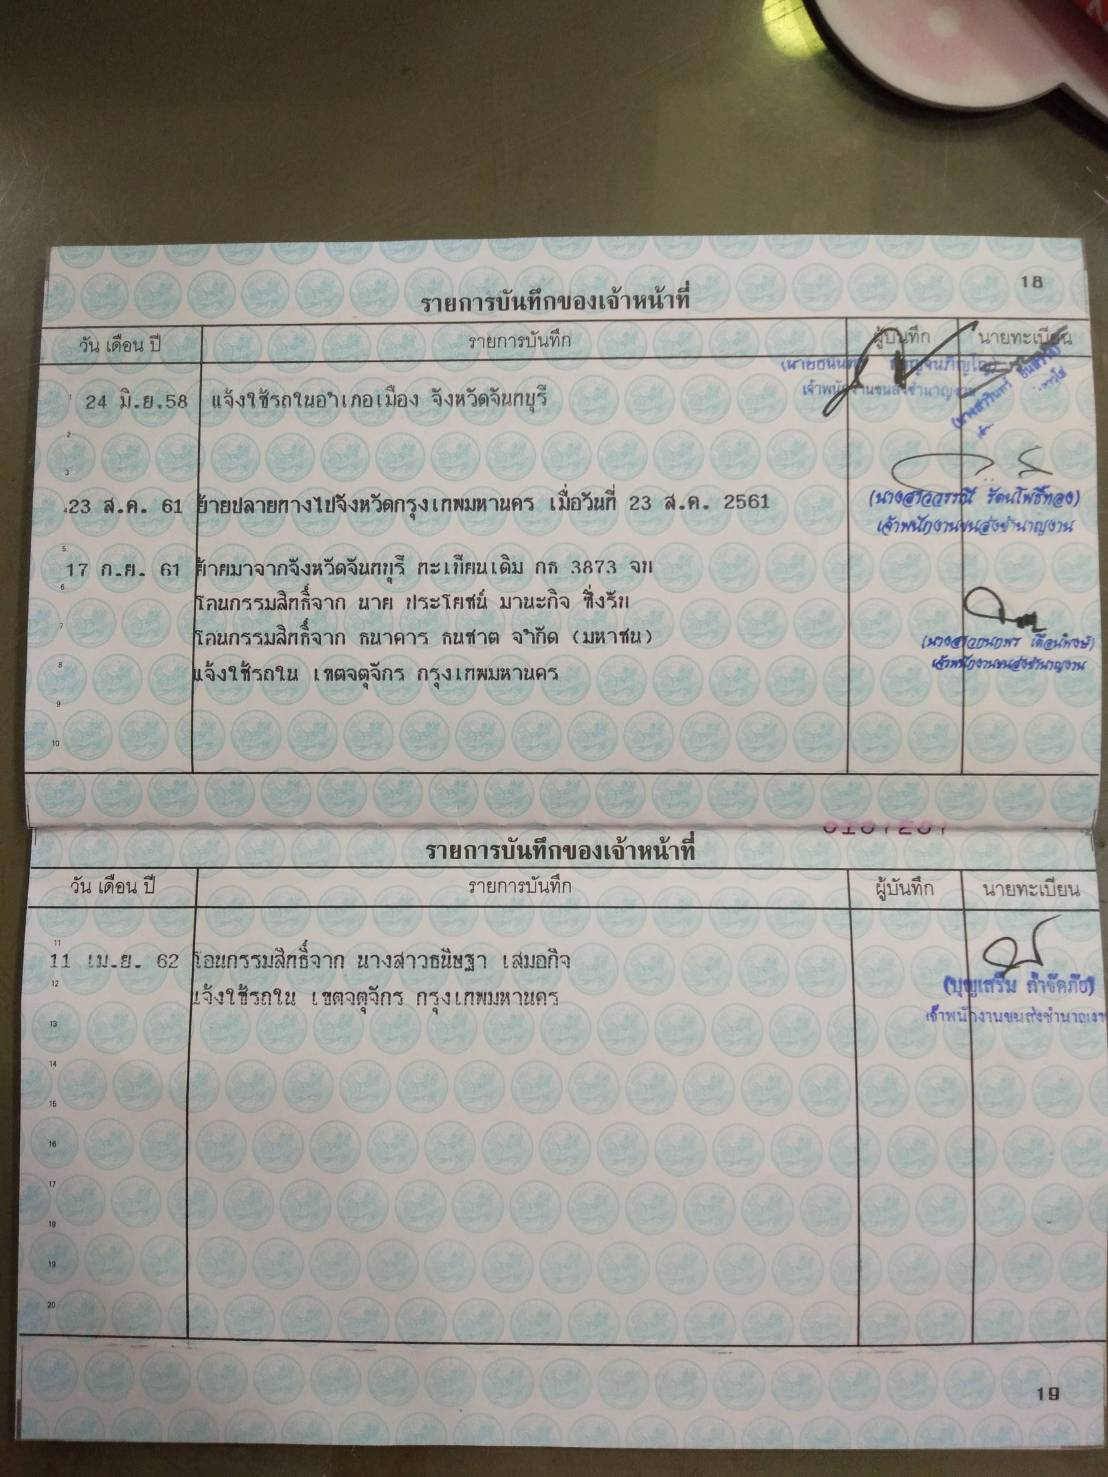 18
รายการบันทึกของเจ้าหน้าที่
วัน เดือน ปี รายการบันทึก ผู้บันทึก นายทะเบียน
1 24 มิ.ย.58 แจ้งใช้รถในอำเภอเมือง จังหวัดจันทบุรี
เจ้าพนักงานขนส่งชำนาญงาน
2
3
23 ส.ค. 61 ย้ายปลายทางไปจังหวัดกรุงเทพมหานคร เมื่อวันที่ 23 ส.ค. 2561
(นางสาววรรณี รัตนโพธิ์ทอง)
เจ้าพนักงานขนส่งชำนาญงาน
5
17 ก.ย. 61 ย้ายมาจากจังหวัดจันทบุรี ทะเบียนเดิม กธ 3873 จบ
6 โอนกรรมสิทธิ์จาก นาย ประโยชน์ มานะกิจ ซึ่งรับ
7 โอนกรรมสิทธิ์จาก ธนาคาร ธนชาต จำกัด (มหาชน)
เจ้าพนักงานขนส่งชำนาญงาน
8 แจ้งใช้รถใน เขตจตุจักร กรุงเทพมหานคร
9
10
รายการบันทึกของเจ้าหน้าที่
วัน เดือน ปี รายการบันทึก ผู้บันทึก นายทะเบียน
11
11 เม.ย. 62 โอนกรรมสิทธิ์จาก นางสาวธนิษฐา เสมอกิจ
12 แจ้งใช้รถใน เขตจตุจักร กรุงเทพมหานคร
(บุญเสริม กำจัดภัย)
เจ้าพนักงานขนส่งชำนาญงา
13
14
15
16
17
18
19
20
19